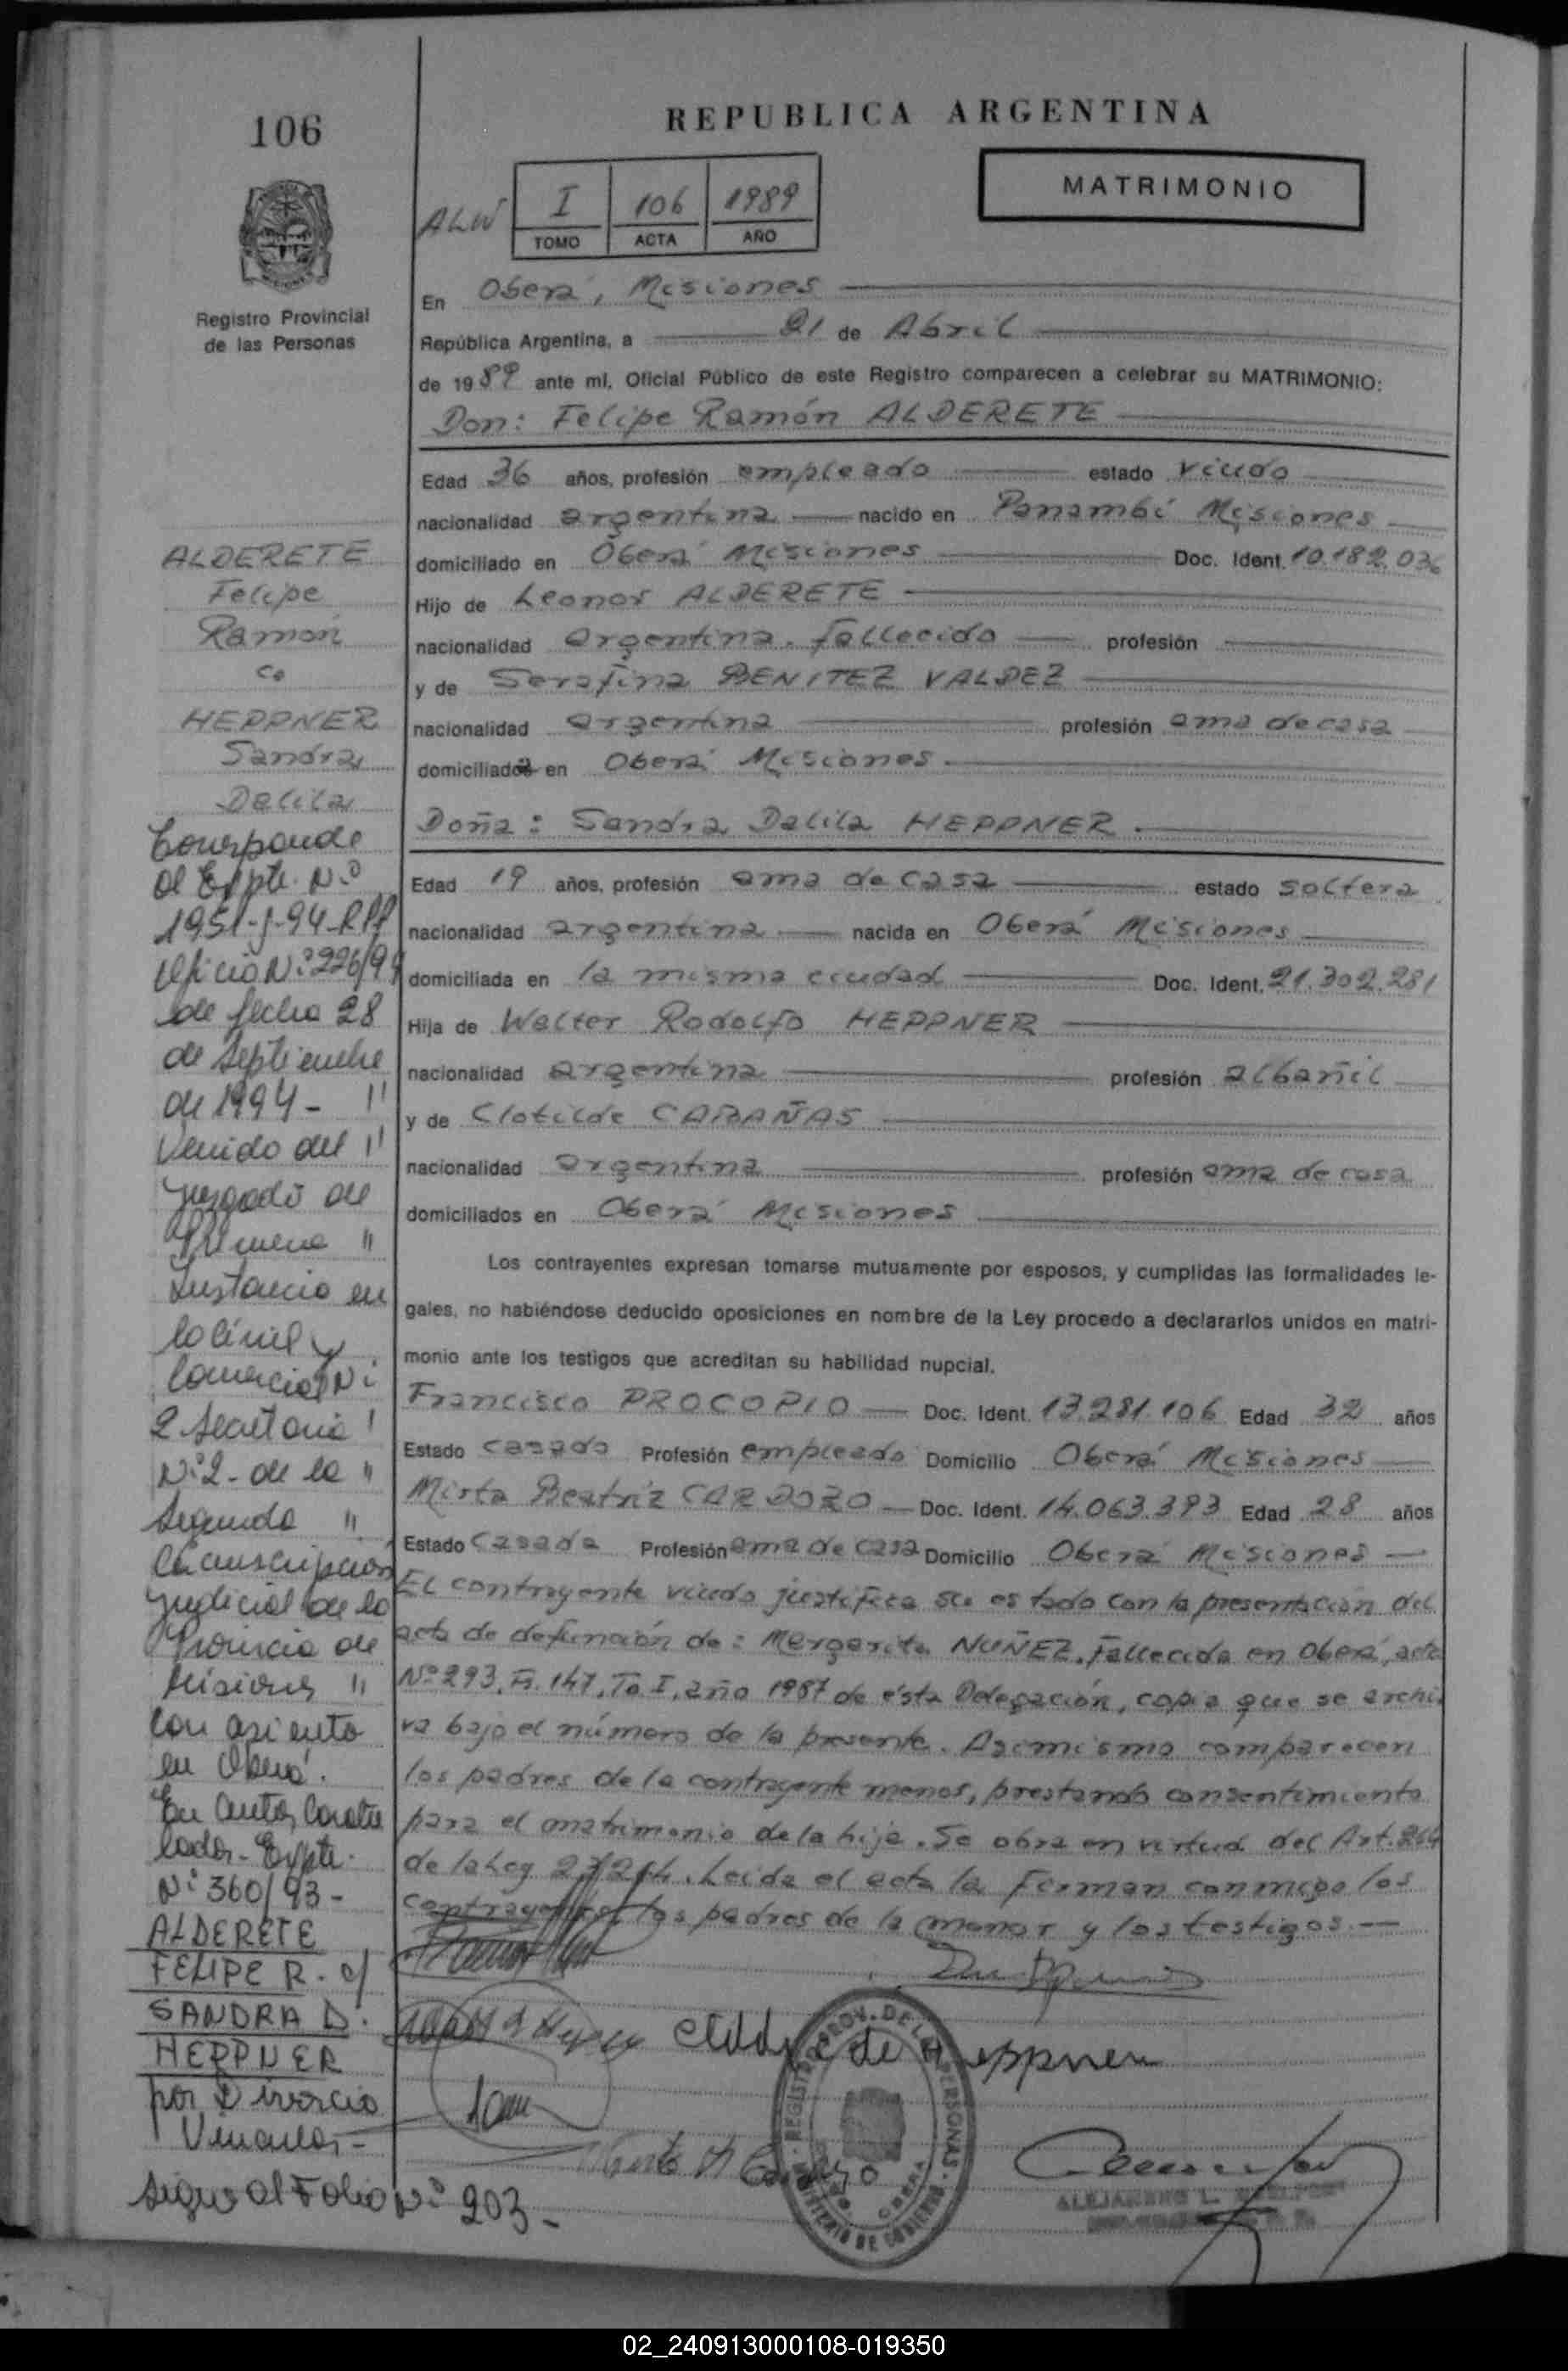 106
REPUBLICA ARGENTINA
MATRIMONIO
ALW
I 106 1989
TOMO ACTA AÑO
Registro Provincial
de las Personas
En Oberá, Misiones
República Argentina, a 21 de Abril
de 1989 ante mí, Oficial Público de este Registro comparecen a celebrar su MATRIMONIO:
Don: Felipe Ramón ALDERETE
Edad 36 años, profesión empleado estado viudo
nacionalidad argentina nacido en Panambí Misiones
domiciliado en Oberá Misiones Doc. Ident. 10.182.036
Hijo de Leonor ALDERETE
nacionalidad argentina. fallecido profesión
y de Serafina BENITEZ VALDEZ
nacionalidad argentina profesión ama de casa
domiciliada en Oberá Misiones
Doña: Sandra Dalila HEPPNER
Edad 19 años, profesión ama de casa estado soltera
nacionalidad argentina nacida en Oberá Misiones
domiciliada en la misma ciudad Doc. Ident. 21.302.281
Hija de Walter Rodolfo HEPPNER
nacionalidad argentina profesión albañil
y de Clotilde CABAÑAS
nacionalidad argentina profesión ama de casa
domiciliados en Oberá Misiones
Los contrayentes expresan tomarse mutuamente por esposos, y cumplidas las formalidades le-
gales, no habiéndose deducido oposiciones en nombre de la Ley procedo a declararlos unidos en matri-
monio ante los testigos que acreditan su habilidad nupcial.
Francisco PROCOPIO Doc. Ident. 13.281.106 Edad 32 años
Estado casado Profesión empleado Domicilio Oberá Misiones
Mirta Beatriz CARDOZO Doc. Ident. 14.063.393 Edad 28 años
Estado Casada Profesión ama de casa Domicilio Oberá Misiones
El contrayente viudo justifica su estado con la presentación del
acta de defunción de: Margarita NUÑEZ. Fallecida en Oberá, acta
Nº 293, Fº. 147, Tº I, año 1987 de ésta Delegación, copia que se archi
va bajo el número de la presente. Asimismo comparecen
los padres de la contrayente menor, prestando consentimiento
para el matrimonio de la hija. Se obra en virtud del Art. 264
de la Ley 23264. Leida el acta la firman conmigo los
contrayentes, los padres de la menor y los testigos.
ALDERETE
Felipe
Ramón
co
HEPPNER
Sandra
Dalila
Corresponde
al Expte. Nº
1951-J-94-RPP
Oficio Nº 226/94
de fecha 28
de Septiembre
de 1994- "
Venido del "
Juzgado de
Primera "
Instancia en
lo Civil y
Comercial Nº
2 Secretaria
Nº 2- de la "
Segunda "
Circunscripción
Judicial de la
Provincia de
Misiones "
con asiento
en Oberá.
En Autos Caratu
lados- Expte.
Nº 360/93-
ALDERETE
FELIPE R. c/
SANDRA D.
HEPPNER
por Divorcio
Vincular-
Sigue al Folio Nº 203-
de Heppner
REGISTRO PROV. DE LAS PERSONAS
MINISTERIO DE GOBIERNO
ALEJANDRO L.
02_240913000108-019350